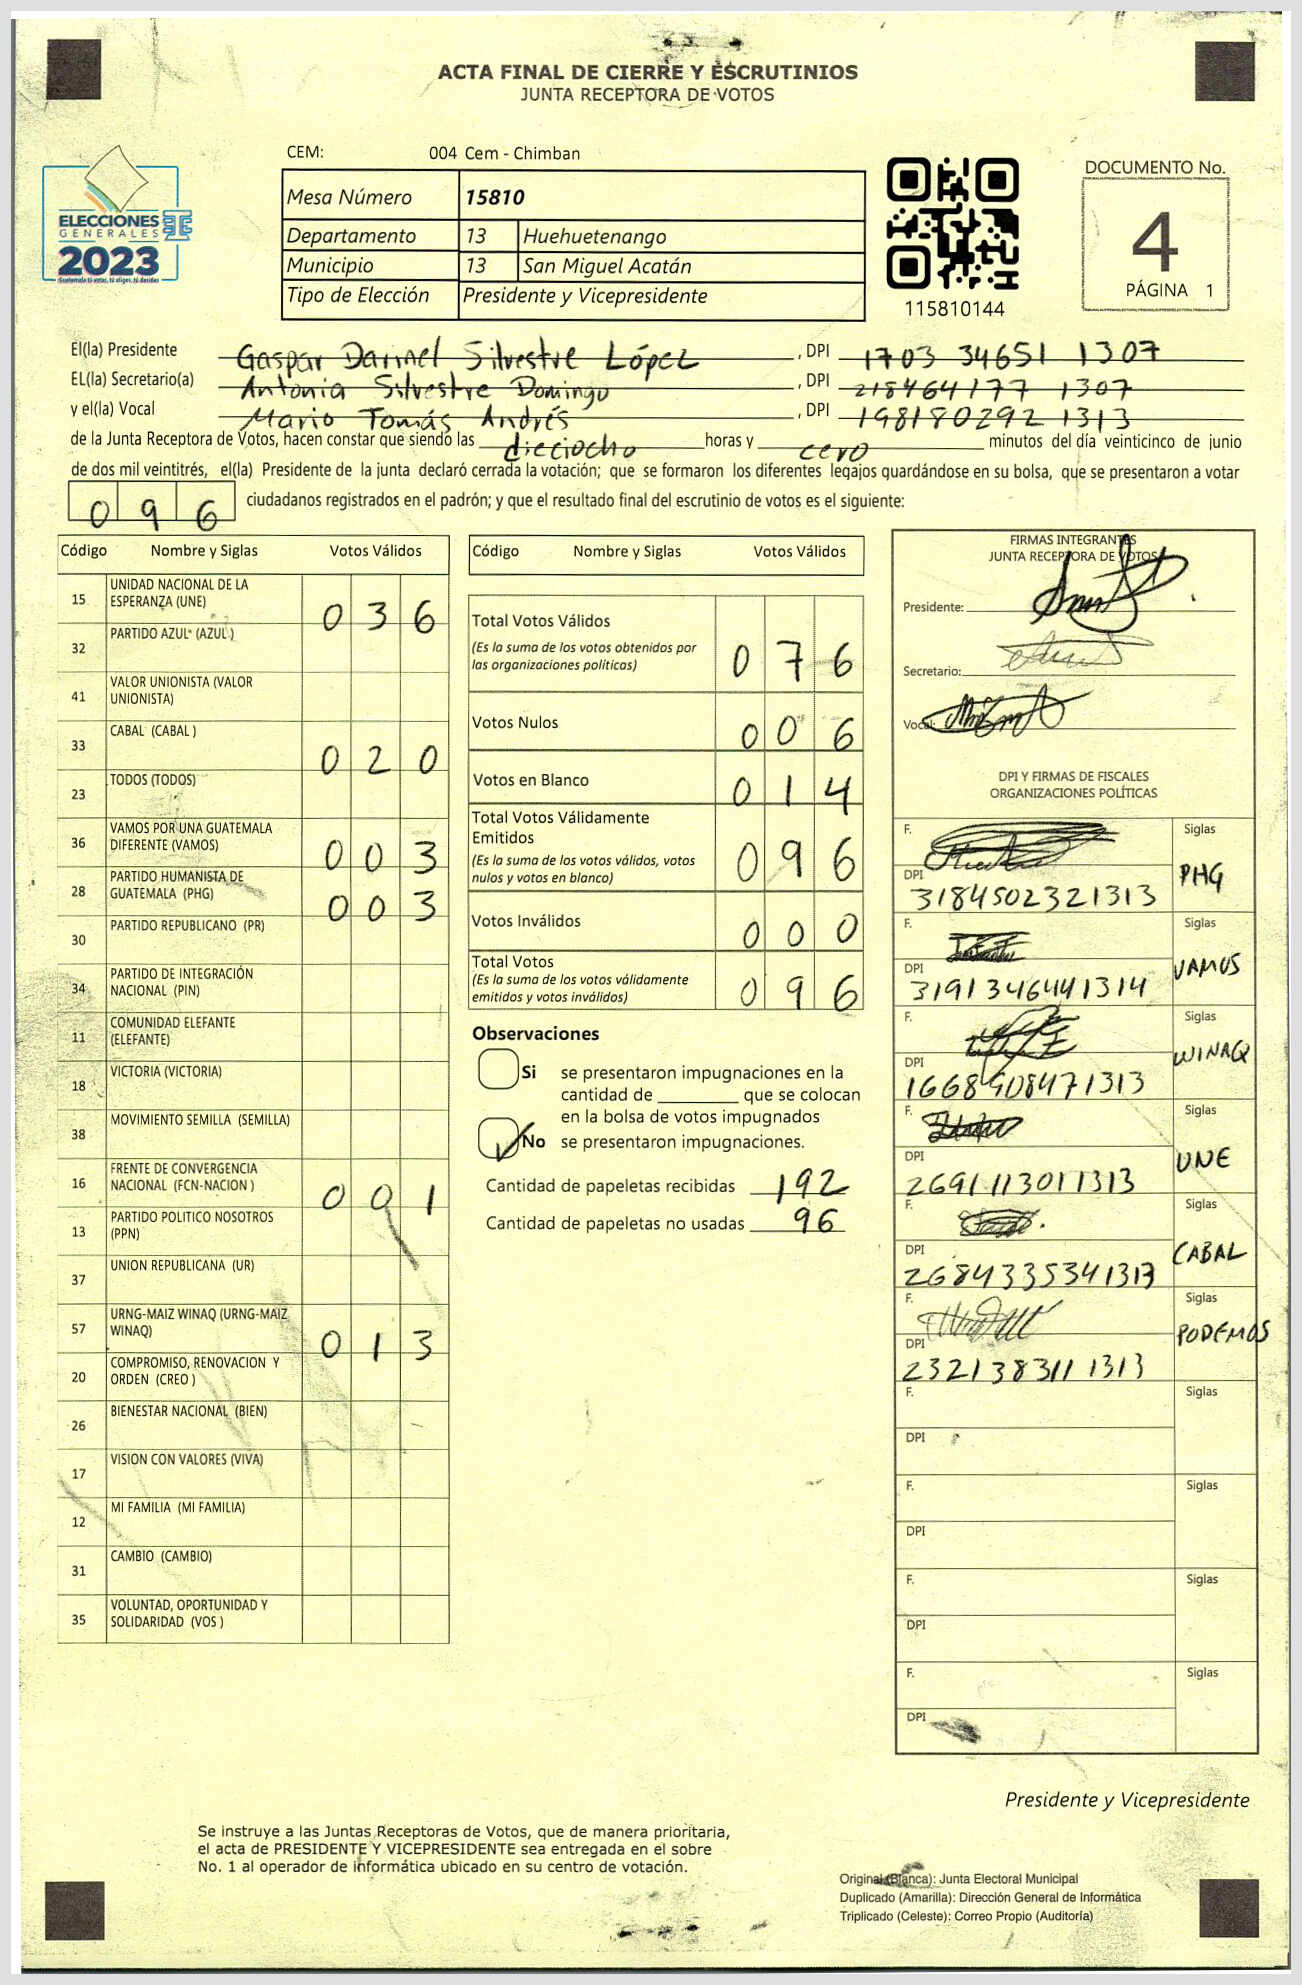 ACTA FINAL DE CIERRE Y ESCRUTINIOS
JUNTA RECEPTORA DE VOTOS
ELECCIONES
GENERALES
2023
Guatemala tú votas, tú eliges, tú decides
CEM: 004 Cem - Chimban
Mesa Número 15810
Departamento 13 Huehuetenango
Municipio 13 San Miguel Acatán
Tipo de Elección Presidente y Vicepresidente
115810144
DOCUMENTO No.
4
PÁGINA 1
El(la) Presidente Gaspar Darinel Silvestre López, DPI 1703 34651 1307
EL(la) Secretario(a) Antonia Silvestre Domingo, DPI 218464177 1307
y el(la) Vocal Mario Tomás Andrés, DPI 198180292 1313
de la Junta Receptora de Votos, hacen constar que siendo las dieciocho horas y cero minutos del día veinticinco de junio
de dos mil veintitrés, el(la) Presidente de la junta declaró cerrada la votación; que se formaron los diferentes legajos guardándose en su bolsa, que se presentaron a votar
096 ciudadanos registrados en el padrón; y que el resultado final del escrutinio de votos es el siguiente:
Código Nombre y Siglas Votos Válidos
15 UNIDAD NACIONAL DE LA
ESPERANZA (UNE) 036
32 PARTIDO AZUL (AZUL )
41 VALOR UNIONISTA (VALOR
UNIONISTA)
33 CABAL (CABAL ) 020
23 TODOS (TODOS)
36 VAMOS POR UNA GUATEMALA
DIFERENTE (VAMOS) 003
28 PARTIDO HUMANISTA DE
GUATEMALA (PHG) 003
30 PARTIDO REPUBLICANO (PR)
34 PARTIDO DE INTEGRACIÓN
NACIONAL (PIN)
11 COMUNIDAD ELEFANTE
(ELEFANTE)
18 VICTORIA (VICTORIA)
38 MOVIMIENTO SEMILLA (SEMILLA)
16 FRENTE DE CONVERGENCIA
NACIONAL (FCN-NACION ) 001
13 PARTIDO POLITICO NOSOTROS
(PPN)
37 UNION REPUBLICANA (UR)
57 URNG-MAIZ WINAQ (URNG-MAIZ
WINAQ) 013
20 COMPROMISO, RENOVACION Y
ORDEN (CREO )
26 BIENESTAR NACIONAL (BIEN)
17 VISION CON VALORES (VIVA)
12 MI FAMILIA (MI FAMILIA)
31 CAMBIO (CAMBIO)
35 VOLUNTAD, OPORTUNIDAD Y
SOLIDARIDAD (VOS )
Código Nombre y Siglas Votos Válidos
Total Votos Válidos
(Es la suma de los votos obtenidos por
las organizaciones políticas) 076
Votos Nulos 006
Votos en Blanco 014
Total Votos Válidamente
Emitidos
(Es la suma de los votos válidos, votos
nulos y votos en blanco) 096
Votos Inválidos 000
Total Votos
(Es la suma de los votos válidamente
emitidos y votos inválidos) 096
Observaciones
Si se presentaron impugnaciones en la
cantidad de ________ que se colocan
en la bolsa de votos impugnados
No se presentaron impugnaciones.
Cantidad de papeletas recibidas 192
Cantidad de papeletas no usadas 96
FIRMAS INTEGRANTES
JUNTA RECEPTORA DE VOTOS
Presidente:
Secretario:
Vocal:
DPI Y FIRMAS DE FISCALES
ORGANIZACIONES POLÍTICAS
F. Siglas
DPI 3184502321313 PHG
F. Siglas
DPI 3191346441314 VAMOS
F. Siglas
DPI 1668908471313 WINAQ
F. Siglas
DPI 2691113011313 UNE
F. Siglas
DPI 2684335341313 CABAL
F. Siglas
DPI 2321383111313 PODEMOS
F. Siglas
DPI
F. Siglas
DPI
F. Siglas
DPI
F. Siglas
DPI
Presidente y Vicepresidente
Se instruye a las Juntas Receptoras de Votos, que de manera prioritaria,
el acta de PRESIDENTE Y VICEPRESIDENTE sea entregada en el sobre
No. 1 al operador de informática ubicado en su centro de votación.
Original (Blanca): Junta Electoral Municipal
Duplicado (Amarilla): Dirección General de Informática
Triplicado (Celeste): Correo Propio (Auditoría)